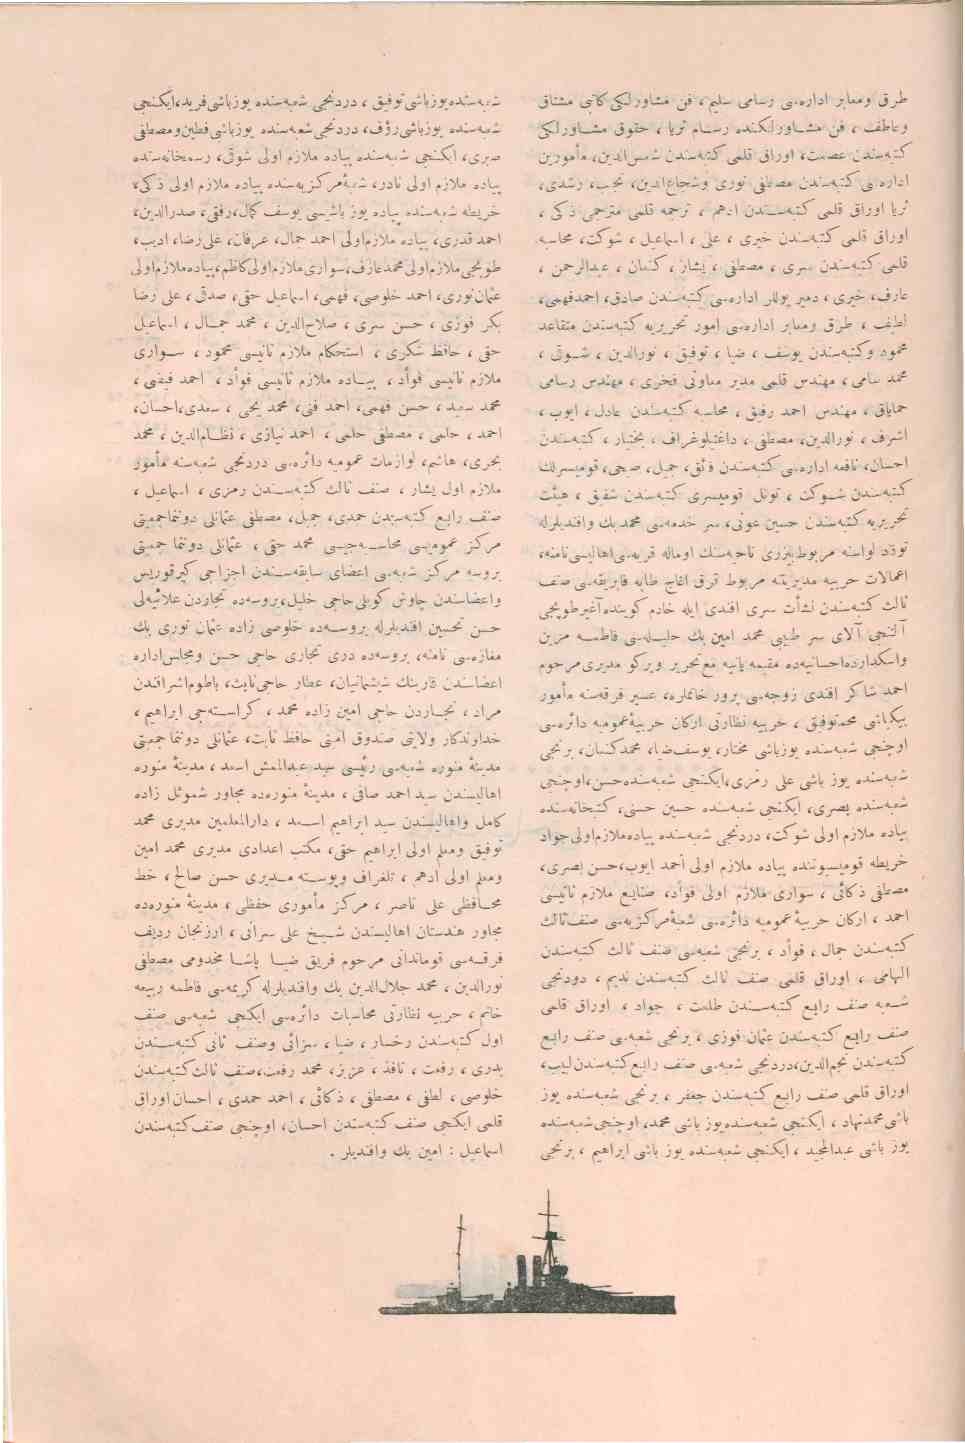 طرق ومعابر اداره‌سی رسامی سلیم، فن مشاورلكی كاتبی مشتاق
وعاطف، فن مشاورلكنده رسام ثریا، حقوق مشاورلكی
كتبه‌سندن عصمت، اوراق قلمی كتبه‌سندن شمس‌الدین، مأمورین
اداره‌سی كتبه‌سندن مصطفی نوری وشجاع‌الدین، نجیب، رشدی،
ثریا اوراق قلمی كتبه‌سندن ادهم، ترجمه قلمی مترجمی ذكی،
اوراق قلمی كتبه‌سندن خیری، علی، اسماعیل، شوكت، محاسبه
قلمی كتبه‌سندن سری، مصطفی، یشار، كنعان، عبدالرحمن،
عارف، خیری، دمیر یوللر اداره‌سی كتبه‌سندن صادق، احمد فهمی،
لطیف، طرق ومعابر اداره‌سی امور تحریریه كتبه‌سندن متقاعد
محمود وكتبه‌سندن یوسف، ضیا، توفیق، نورالدین، شوقی،
محمد سامی، مهندس قلمی مدیر معاونی فخری، مهندس رسامی
مهندس احمد رفیق، محاسبه كتبه‌سندن عادل، ایوب،
اشرف، نورالدین، مصطفی، بختیار، كتبه‌سندن
احسان، نافعه اداره‌سی كتبه‌سندن فائق، جمیل، صبحی، قومیسرلك
كتبه‌سندن شوكت، تونل قومیسری كتبه‌سندن شفیق، هیئت
تحریریه كتبه‌سندن حسین عونی، سر خدمه‌سی محمد بك وافندیلرله
لواسنه مربوط ناحیه‌سنك قریه‌سی اهالیسی نامنه،
اعمالات حربیه مدیریتنه مربوط قرق اغاج طابه فابریقه‌سی صنف
ثالث كتبه‌سندن نشأت سری افندی ایله خادم كوینده آغیر طوپچی
آلتنجی آلای سر طبیبی محمد امین بك حلیله‌سی فاطمه مزین
واسكدارده احسانیه‌ده مقیمه مع تحریر ویركو مدیری مرحوم
احمد شاكر افندی زوجه‌سی پرور خانملره، عسیر فرقه‌سنه مأمور
بیكباشی محمد توفیق، حربیه نظارتی اركان حربیهٔ عمومیه دائره‌سی
اوچنجی شعبه‌سنده یوزباشی مختار، یوسف ضیا، محمد كنعان، برنجی
شعبه‌سنده یوز باشی علی رمزی، ایكنجی شعبه‌سنده حسن، اوچنجی
شعبه‌سنده بصری، ایكنجی شعبه‌سنده حسین حسنی، كتبخانه‌سنده
پیاده ملازم اولی شوكت، دردنجی شعبه‌سنده پیاده ملازم اولی جواد
خریطه قومیسیوننده پیاده ملازم اولی احمد ایوب، حسن بصری،
مصطفی ذكائی، سواری ملازم اولی فواد، صنایع ملازم ثانیسی
احمد، اركان حربیهٔ عمومیه دائره‌سی شعبهٔ مركزیه‌سی صنف ثالث
كتبه‌سندن جمال، فوأد، برنجی شعبه‌سی صنف ثالث كتبه‌سندن
الهامی، اوراق قلمی صنف ثالث كتبه‌سندن ندیم، دردنجی
شعبه صنف رابع كتبه‌سندن طلعت، جواد، اوراق قلمی
صنف رابع كتبه‌سندن عثمان فوزی، برنجی شعبه‌سی صنف رابع
كتبه‌سندن نجم‌الدین، دردنجی شعبه‌سی صنف رابع كتبه‌سندن لبیب،
اوراق قلمی صنف رابع كتبه‌سندن جعفر، برنجی شعبه‌سنده یوز
باشی محمد نهاد، ایكنجی شعبه‌سنده یوز باشی محمد، اوچنجی شعبه‌سنده
یوز باشی عبدالمجید، ایكنجی شعبه‌سنده یوز باشی ابراهیم، برنجی
شعبه‌سنده یوزباشی توفیق، دردنجی شعبه‌سنده یوزباشی فرید، ایكنجی
شعبه‌سنده یوزباشی رؤف، دردنجی شعبه‌سنده یوزباشی فطین ومصطفی
صبری، ایكنجی شعبه‌سنده پیاده ملازم اولی شوقی، رسمخانه‌سنده
پیاده ملازم اولی نادر، شعبهٔ مركزیه‌سنده پیاده ملازم اولی ذكی،
خریطه شعبه‌سنده پیاده یوز باشیسی یوسف كمال، رفقی، صدرالدین،
احمد قدری، پیاده ملازم اولی احمد جمال، عرفان، علی رضا، ادیب،
طوپجی ملازم اولی محمد عارف، سواری ملازم اولی كاظم، پیاده ملازم اولی
عثمان نوری، احمد خلوصی، فهمی، اسماعیل حقی، صدقی، علی رضا
بكر فوزی، حسن سری، صلاح‌الدین، محمد جمال، اسماعیل
حقی، حافظ شكری، استحكام ملازم ثانیسی محمود، سواری
ملازم ثانیسی فوأد، پیاده ملازم ثانیسی فوأد، احمد فیضی،
محمد سعید، حسن فهمی، احمد فنی، محمد یحیی، سعدی، احسان،
احمد، حلمی، مصطفی حلمی، احمد نیازی، نظام‌الدین، محمد
بحری، هاشم، لوازمات عمومیه دائره‌سی دردنجی شعبه‌سنه مأمور
ملازم اول یشار، صنف ثالث كتبه‌سندن رمزی، اسماعیل،
صنف رابع كتبه‌سندن حمدی، جمیل، مصطفی عثمانلی دوننما جمعیتی
مركز عمومیسی محاسبه‌جیسی محمد حقی، عثمانلی دوننما جمعیتی
بروسه مركز شعبه‌سی اعضای سابقه‌سندن اجزاجی كیرقوریس
واعضاسندن چاوش كویلی حاجی خلیل، بروسه‌ده تجاردن علائیه‌لی
حسن تحسین افندیلرله بروسه‌ده خلوصی زاده عثمان نوری بك
مغازه‌سی نامنه، بروسه‌ده دری تجاری حاجی حسن ومجلس اداره
اعضاسندن عطار حاجی ثابت،
مراد، تجاردن حاجی امین زاده محمد، كراسته‌جی ابراهیم،
خداوندكار ولایتی صندوق امینی حافظ ثابت، عثمانلی دوننما جمعیتی
مدینهٔ منوره شعبه‌سی رئیسی سید اسعد، مدینهٔ منوره
اهالیسندن سید احمد صافی، مدینهٔ منوره‌ده مجاور شموئل زاده
كامل واهالیسندن سید ابراهیم اسعد، دارالمعلمین مدیری محمد
توفیق ومعلم اولی ابراهیم حقی، مكتب اعدادی مدیری محمد امین
ومعلم اولی ادهم، تلغراف وپوسته مدیری حسن صالح، خط
محافظی علی ناصر، مركز مأموری حفظی، مدینهٔ منوره‌ده
مجاور هندستان اهالیسندن شیخ علی، ارزنجان ردیف
فرقه‌سی قوماندانی مرحوم فریق ضیا پاشا مخدومی مصطفی
نورالدین، محمد جلال‌الدین بك وافندیلرله كریمه‌سی فاطمه ربیعه
خانم، حربیه نظارتی محاسبات دائره‌سی ایكنجی شعبه‌سی صنف
اول كتبه‌سندن رخسار، ضیا، سزائی وصنف ثانی كتبه‌سندن
بدری، رفعت، نافذ، عزیز، محمد رفعت، صنف ثالث كتبه‌سندن
خلوصی، لطفی، مصطفی، ذكائی، احمد حمدی، احسان اوراق
قلمی ایكنجی صنف كتبه‌سندن احسان، اوچنجی صنف كتبه‌سندن
اسماعیل : امین بك وافندیلر.